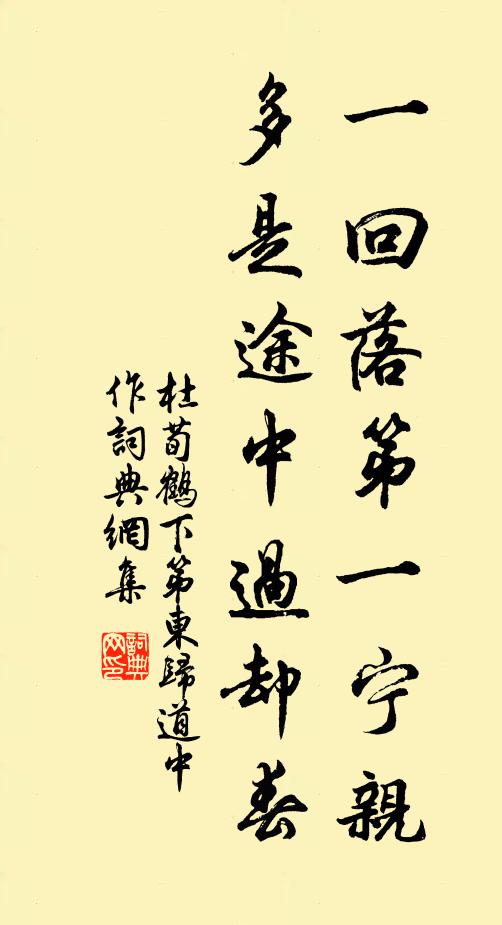 一回落第一宁親
多是途中過却春
杜荀鶴下第東歸道中
作詞典網集
詞典网印